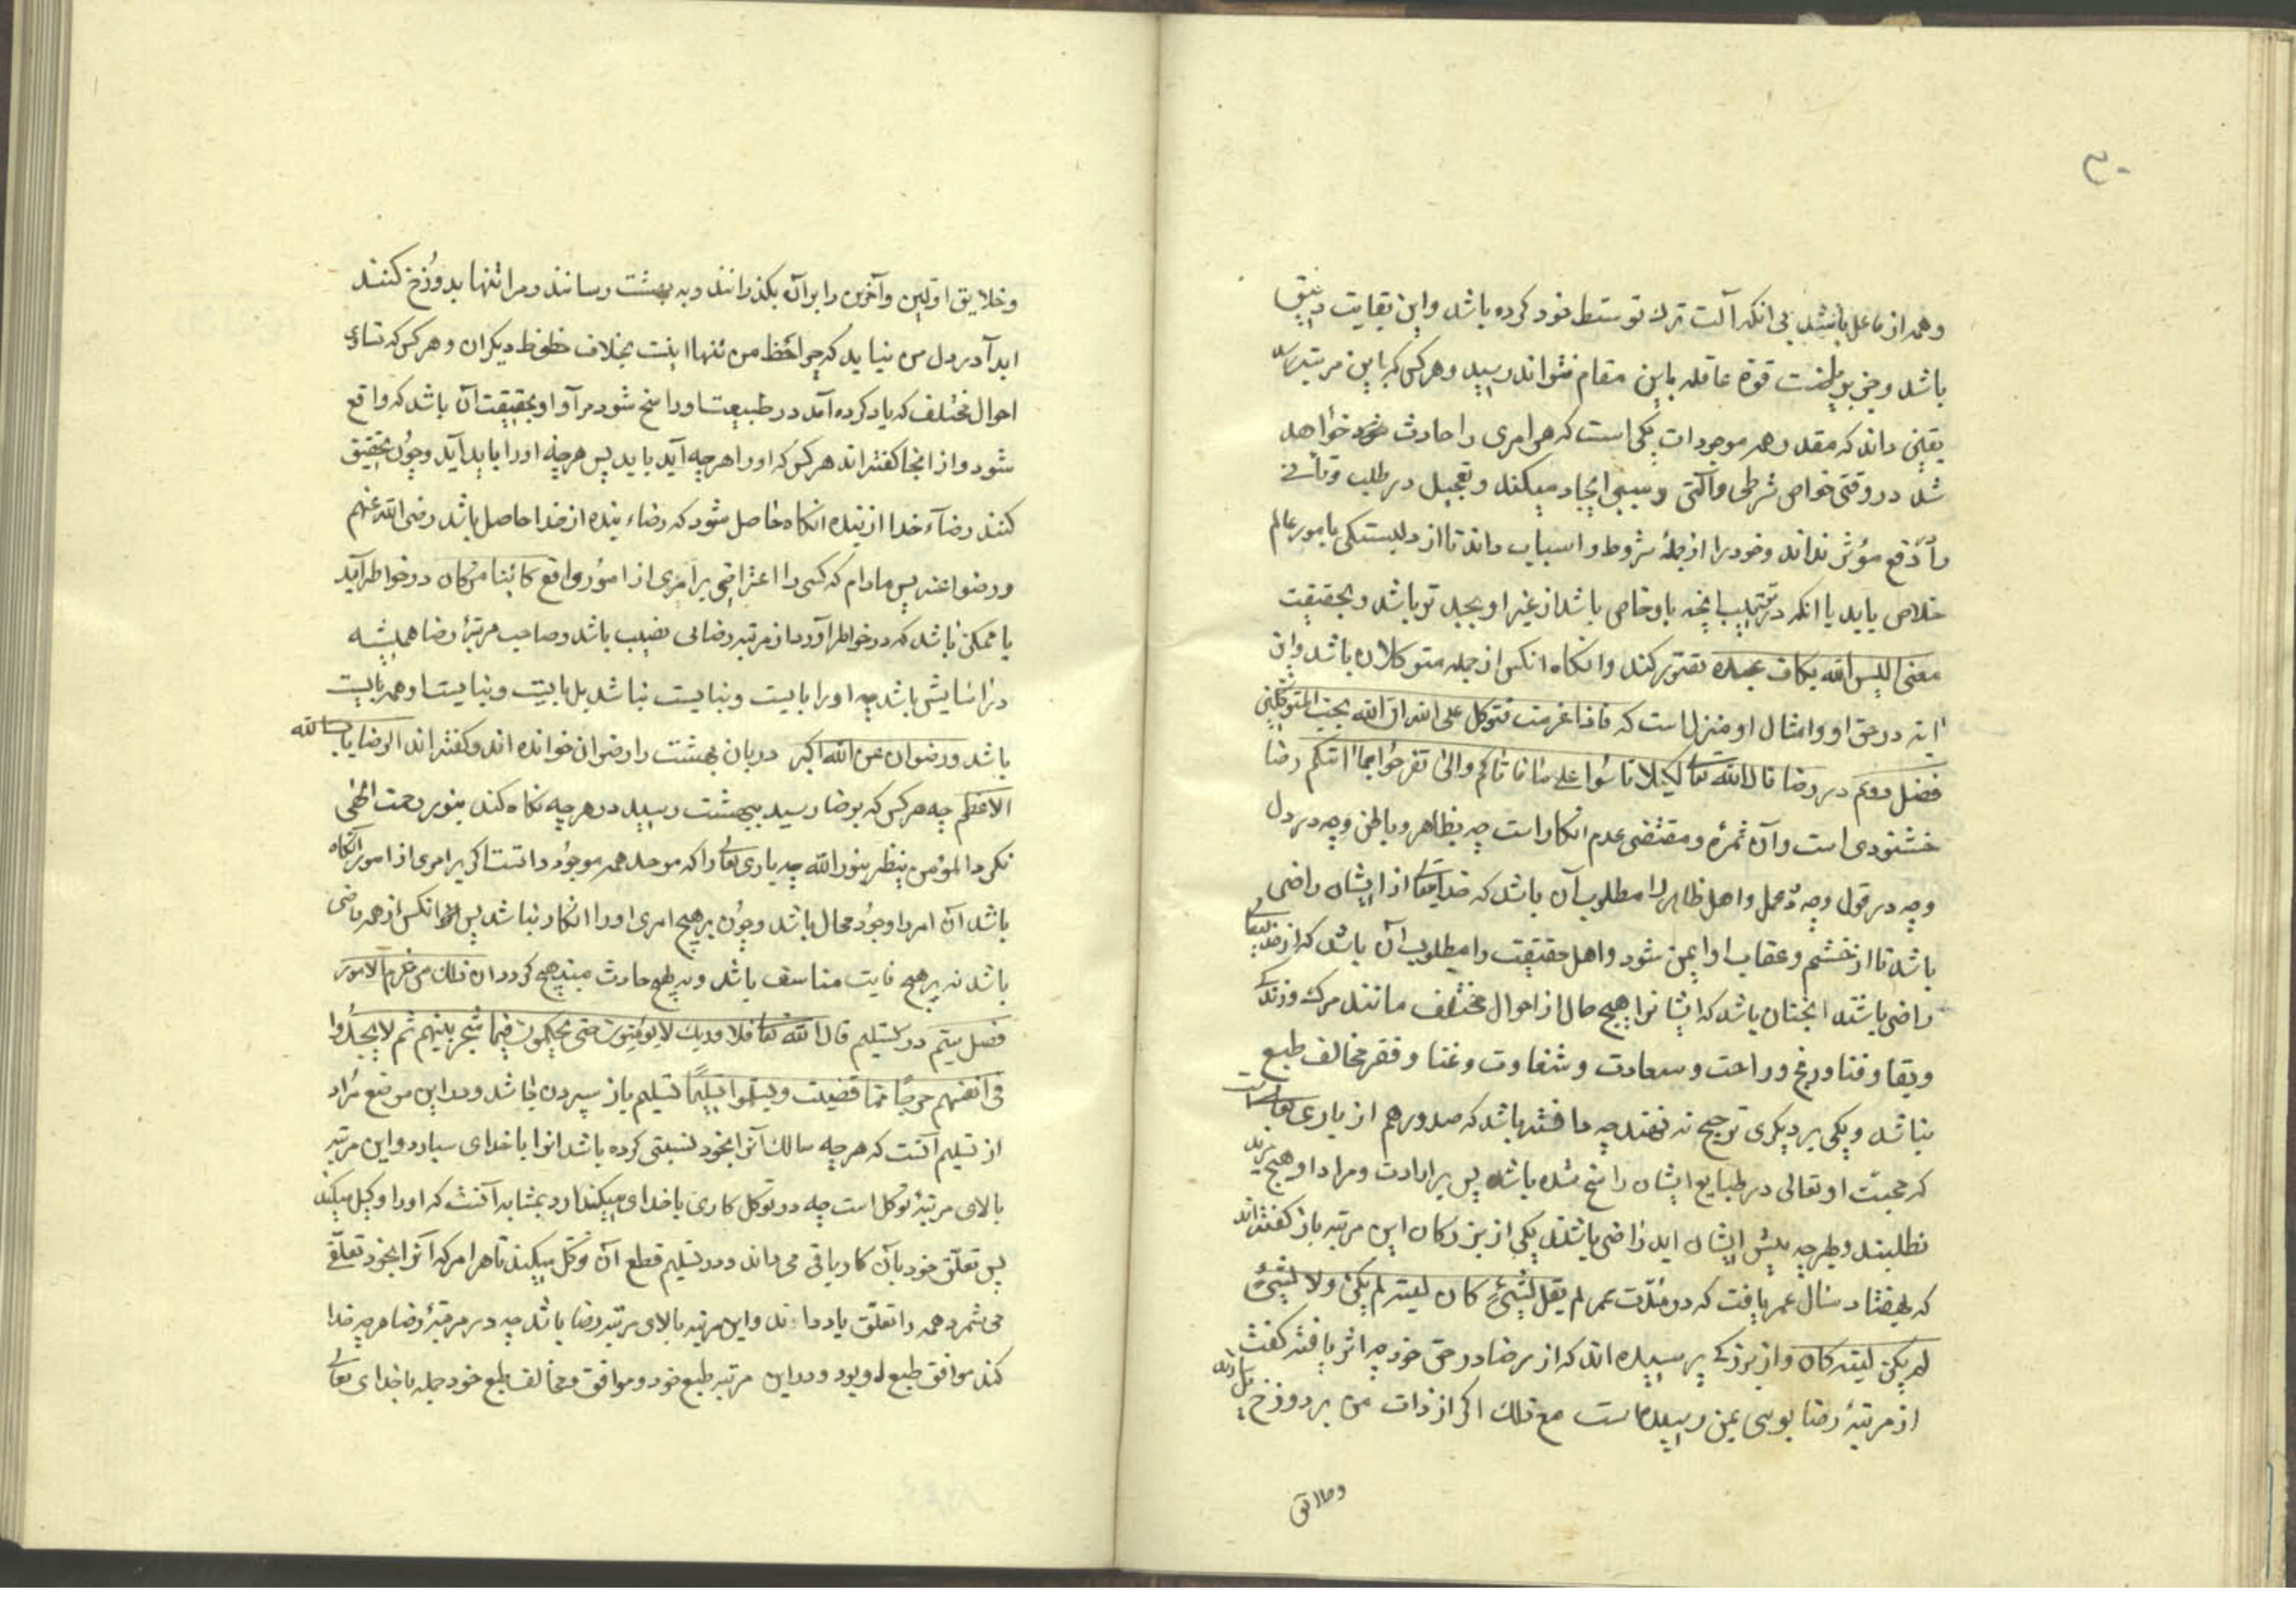 ۳۰
و همه از فاعل باشد بی انکه آلت ترک توسط خود کرده باشد و این بغایت دقیق
باشد و جز بریاضت قوة عاقله باین مقام نتواند رسید و هر کس که باین مرتبه رسد
یقین داند که مقدر همه موجودات یکی است که هر امری را حادث خود خواهد
شد در وقتی خواص شرطی و آلتی و سببی ایجاد میکند و تعجیل در طلب و تأنی
را دفع مؤثر نداند و خود را از جملهٔ شروط و اسباب داند تا از دلبستکی بامور عالم
خلاص یابد یا انکه در ترتیب انچه باو خاص باشد از غیر او بجد تر باشد و بحقیقت
معنی الیس الله بکاف عبده تصور کند و انکاه انکس از جمله متوکلان باشد و این
ایه در حق او و امثال او منزل است که فاذا عزمت فتوکل علی الله ان الله یحب المتوکلین
فصل دوم در رضا قال الله تعالی لکیلا تاسوا علی ما فاتکم ولا تفرحوا بما اتیکم رضا
خشنودی است و آن ثمرهٔ و مقتضی عدم انکار است چه بظاهر و باطن و چه در دل
و چه در قول و چه در عمل و اهل ظاهر را مطلوب آن باشد که خدایتعالی از ایشان راضی
باشد تا از خشم و عقاب او ایمن شود و اهل حقیقت را مطلوب آن باشد که از خدایتعالی
راضی باشند انچنان باشد که ایشانرا هیچ حال از احوال مختلف مانند مرک و زندکی
و بقا و فنا و رنج و راحت و سعادت و شقاوت و غنا و فقر مخالف طبع
نباشد و یکی بر دیکری ترجیح نه نهند چه دانسته باشد که صدور هم از باری تعالی است
که محبت او تعالی در طبایع ایشان راسخ شده باشد پس بر ارادت و مراد او هیچ مزید
نطلبند و بهرچه پیش ایشان اید راضی باشند یکی از بزرکان این مرتبه باز کفته‌اند
که بهفتاد سال عمر یافت که در مدت عمر لم یقل لشیءٍ کان لیته لم یکن ولا لشیءٍ
لم یکن لیته کان و از بزرکی پرسیده اند که از رضا در حق خود چه اثر یافته کفت
از مرتبهٔ رضا بویی بمن رسیده است مع ذلک اکر از ذات من بر دوزخ پل سازند
وخلایق
و خلایق اولین و آخرین را بر آن بکذرانند و به بهشت رسانند و مرا تنها بدوزخ کنند
ابدآ در دل من نیاید که چرا حظ من تنها اینست بخلاف حظوظ دیکران و هر کس که تساوی
احوال مختلف که یاد کرده آمد در طبیعت او راسخ شود مرآد او بحقیقت آن باشد که واقع
شود و از انجا کفته‌اند هر کس که او را هر چه آید باید پس هرچه او را باید آید و چون تحقیق
کنند رضآء خدا از بنده انکاه حاصل شود که رضاء بنده از خدا حاصل باشد رضی الله عنهم
و رضوا عنه پس مادام که کسی را اعتراضی بر امری از امور واقع کائنا من کان در خواطر آید
یا ممکن باشد که در خواطر آورد از مرتبه رضا بی نصیب باشد و صاحب مرتبهٔ رضا همیشه
در آسایش باشد چه او را بایست و نبایست نباشد بل بایست و نبایست او همه بایست
باشد و رضوان من الله اکبر دربان بهشت را رضوان خوانده اند و کفته اند الرضا باب الله
الاعظم چه هر کس که برضا رسید ببهشت رسید در هرچه نکاه کند بنور رحمت الهی
نکرد المؤمن ینظر بنور الله چه باری تعالی را که موجد همه موجود داتست اکر بر امری از امور انکار
باشد آن امر را وجود محال باشد و چون بر هیچ امری او را انکار نباشد پس انکس از همه راضی
باشد نه بر هیچ فایت متاسف باشد و نه بر هیچ حادث مبتهج کردد ان ذلک من عزم الامور
فصل سیّم در تسلیم قال الله تعالی فلا وربک لا یؤمنون حتی یحکموک فیما شجر بینهم ثم لا یجدوا
فی انفسهم حرجًا مما قضیت و یسلموا تسلیمًا تسلیم باز سپردن باشد و در این موضع مراد
از تسلیم آنست که هر چه سالک آنرا بخود نسبتی کرده باشد انرا با خدای سپارد و این مرتبه
بالای مرتبهٔ توکل است چه در توکل کاری با خدای میکند ارد بمثابه آنست که او را وکیل میکند
پس تعلق خود بآن کار باقی می داند و در تسلیم قطع آن توکل میکند تا هر امر که آنرا بخود تعلق
می شمرد همه را تعلق باو داند و این مرتبه بالای مرتبه رضا باشد چه در مرتبهٔ رضا هرچه خدا
کند موافق طبع او بود و در این مرتبه طبع خود و موافق و مخالف طبع خود جمله با خدای تعالی